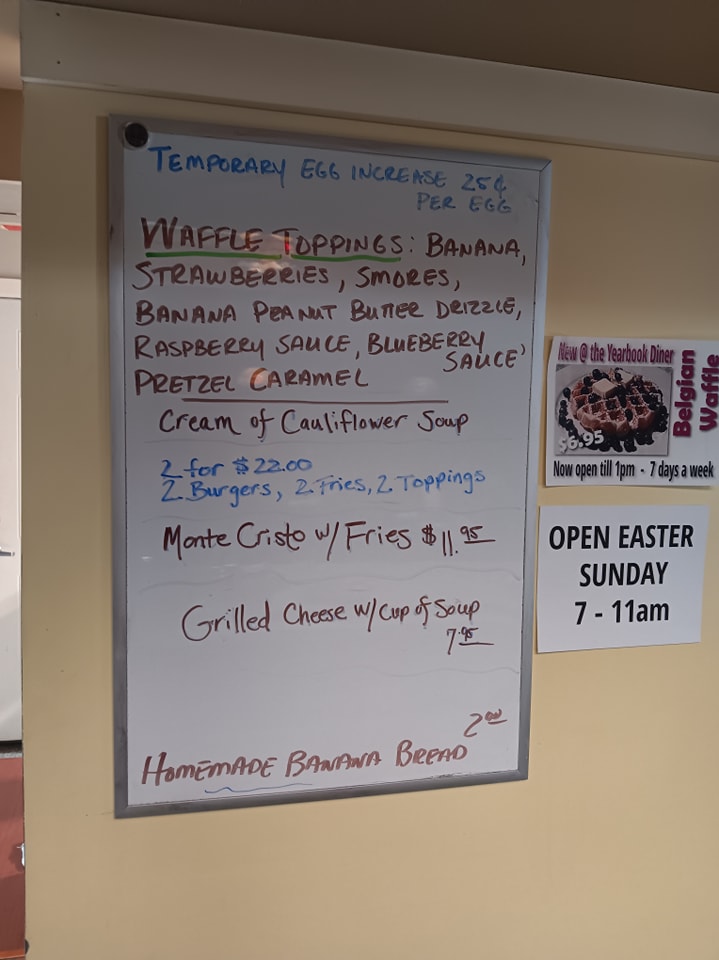 TEMPORARY EGG INCREASE 25¢
PER EGG
WAFFLE TOPPINGS: BANANA,
STRAWBERRIES, SMORES,
BANANA PEANUT BUTTER DRIZZLE,
RASPBERRY SAUCE, BLUEBERRY
SAUCE,
PRETZEL CARAMEL
Cream of Cauliflower Soup
2 for $22.00
2 Burgers, 2 Fries, 2 Toppings
Monte Cristo w/ Fries $11.95
Grilled Cheese w/ Cup of Soup
7.95
2.00
HOMEMADE BANANA BREAD
New @ the Yearbook Diner
Belgian
Waffle
$6.95
Now open till 1pm - 7 days a week
OPEN EASTER
SUNDAY
7 - 11am